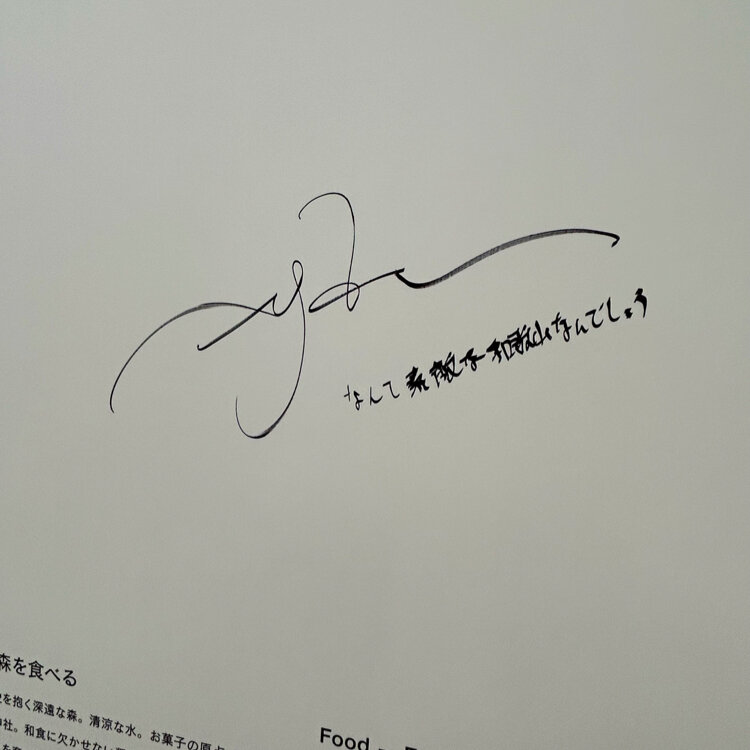 なんて素敵な和歌山なんでしょう
森を食べる
を抱く深遠な森。清涼な水。お菓子の原点
社。和食に欠かせない
Food